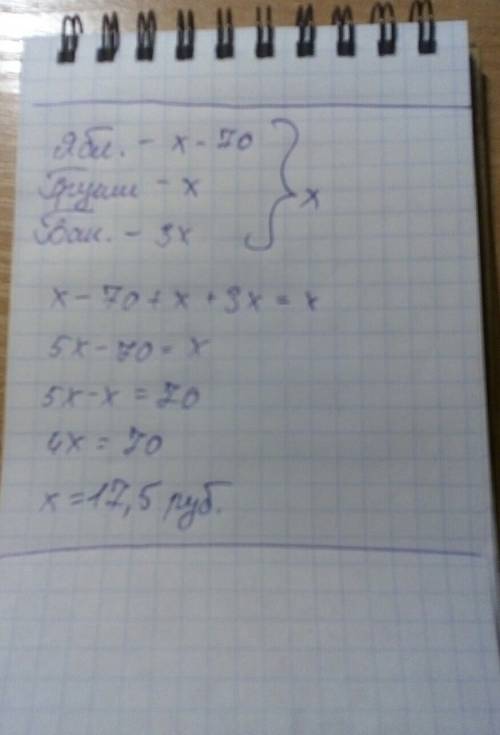 Ябл. - x - 70
Груши - x
Бан. - 3x
x
x - 70 + x + 3x = x
5x - 70 = x
5x - x = 70
4x = 70
x = 17,5 руб.